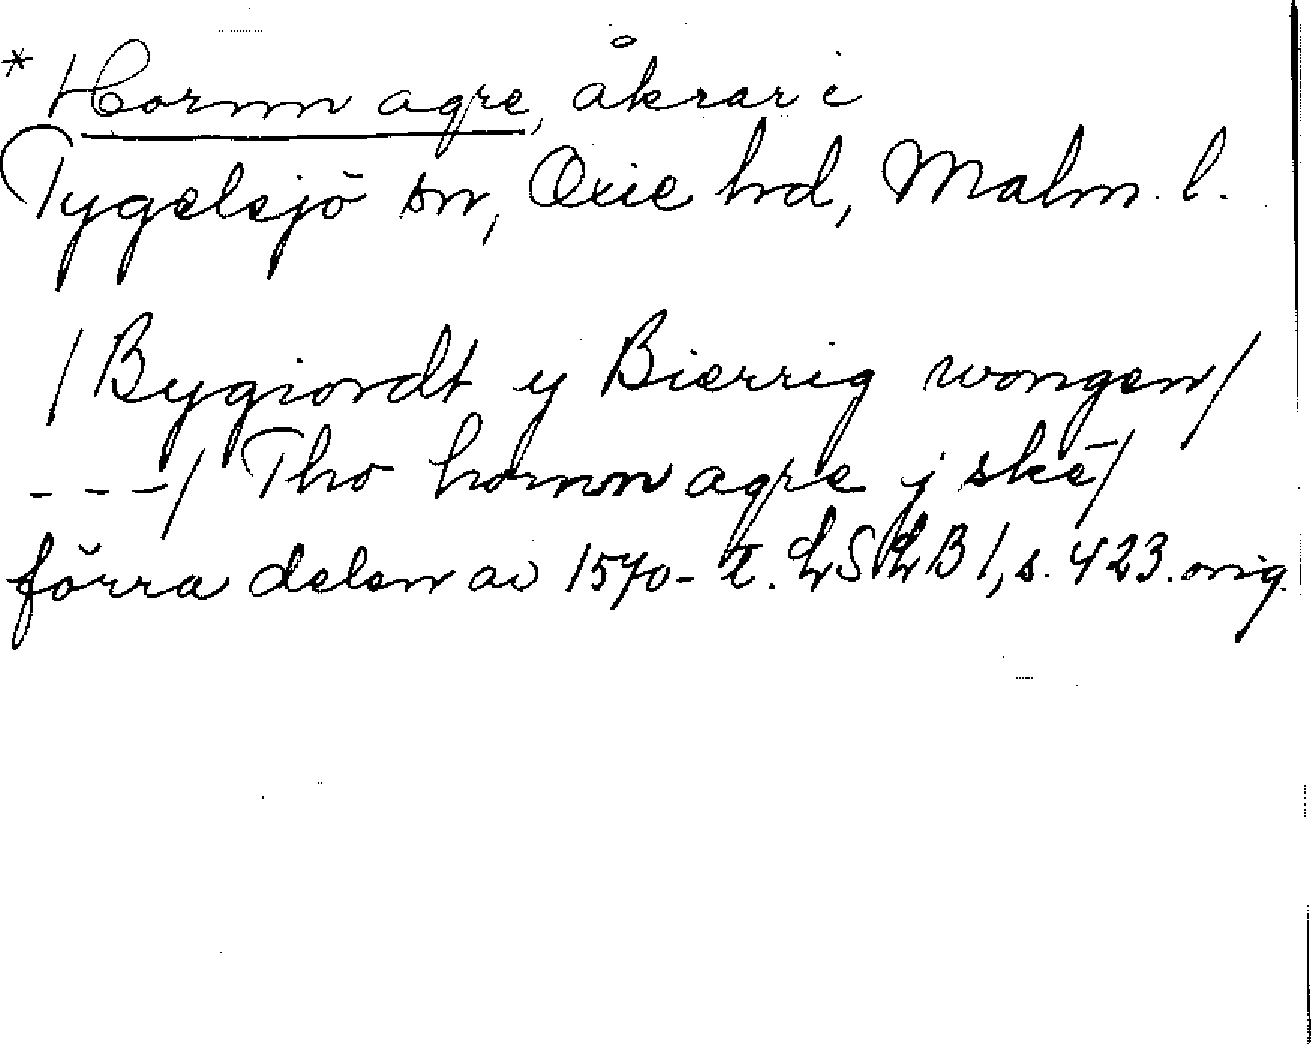 * Hornn agre, åkrar i
Tygelsjö sn, Oxie hd, Malm. l.
/Bygiordt y Bierrig wongen/
---/ Tho hornn agre j skē/
förra delen av 1570-t. LSLB 1, s. 423. orig.